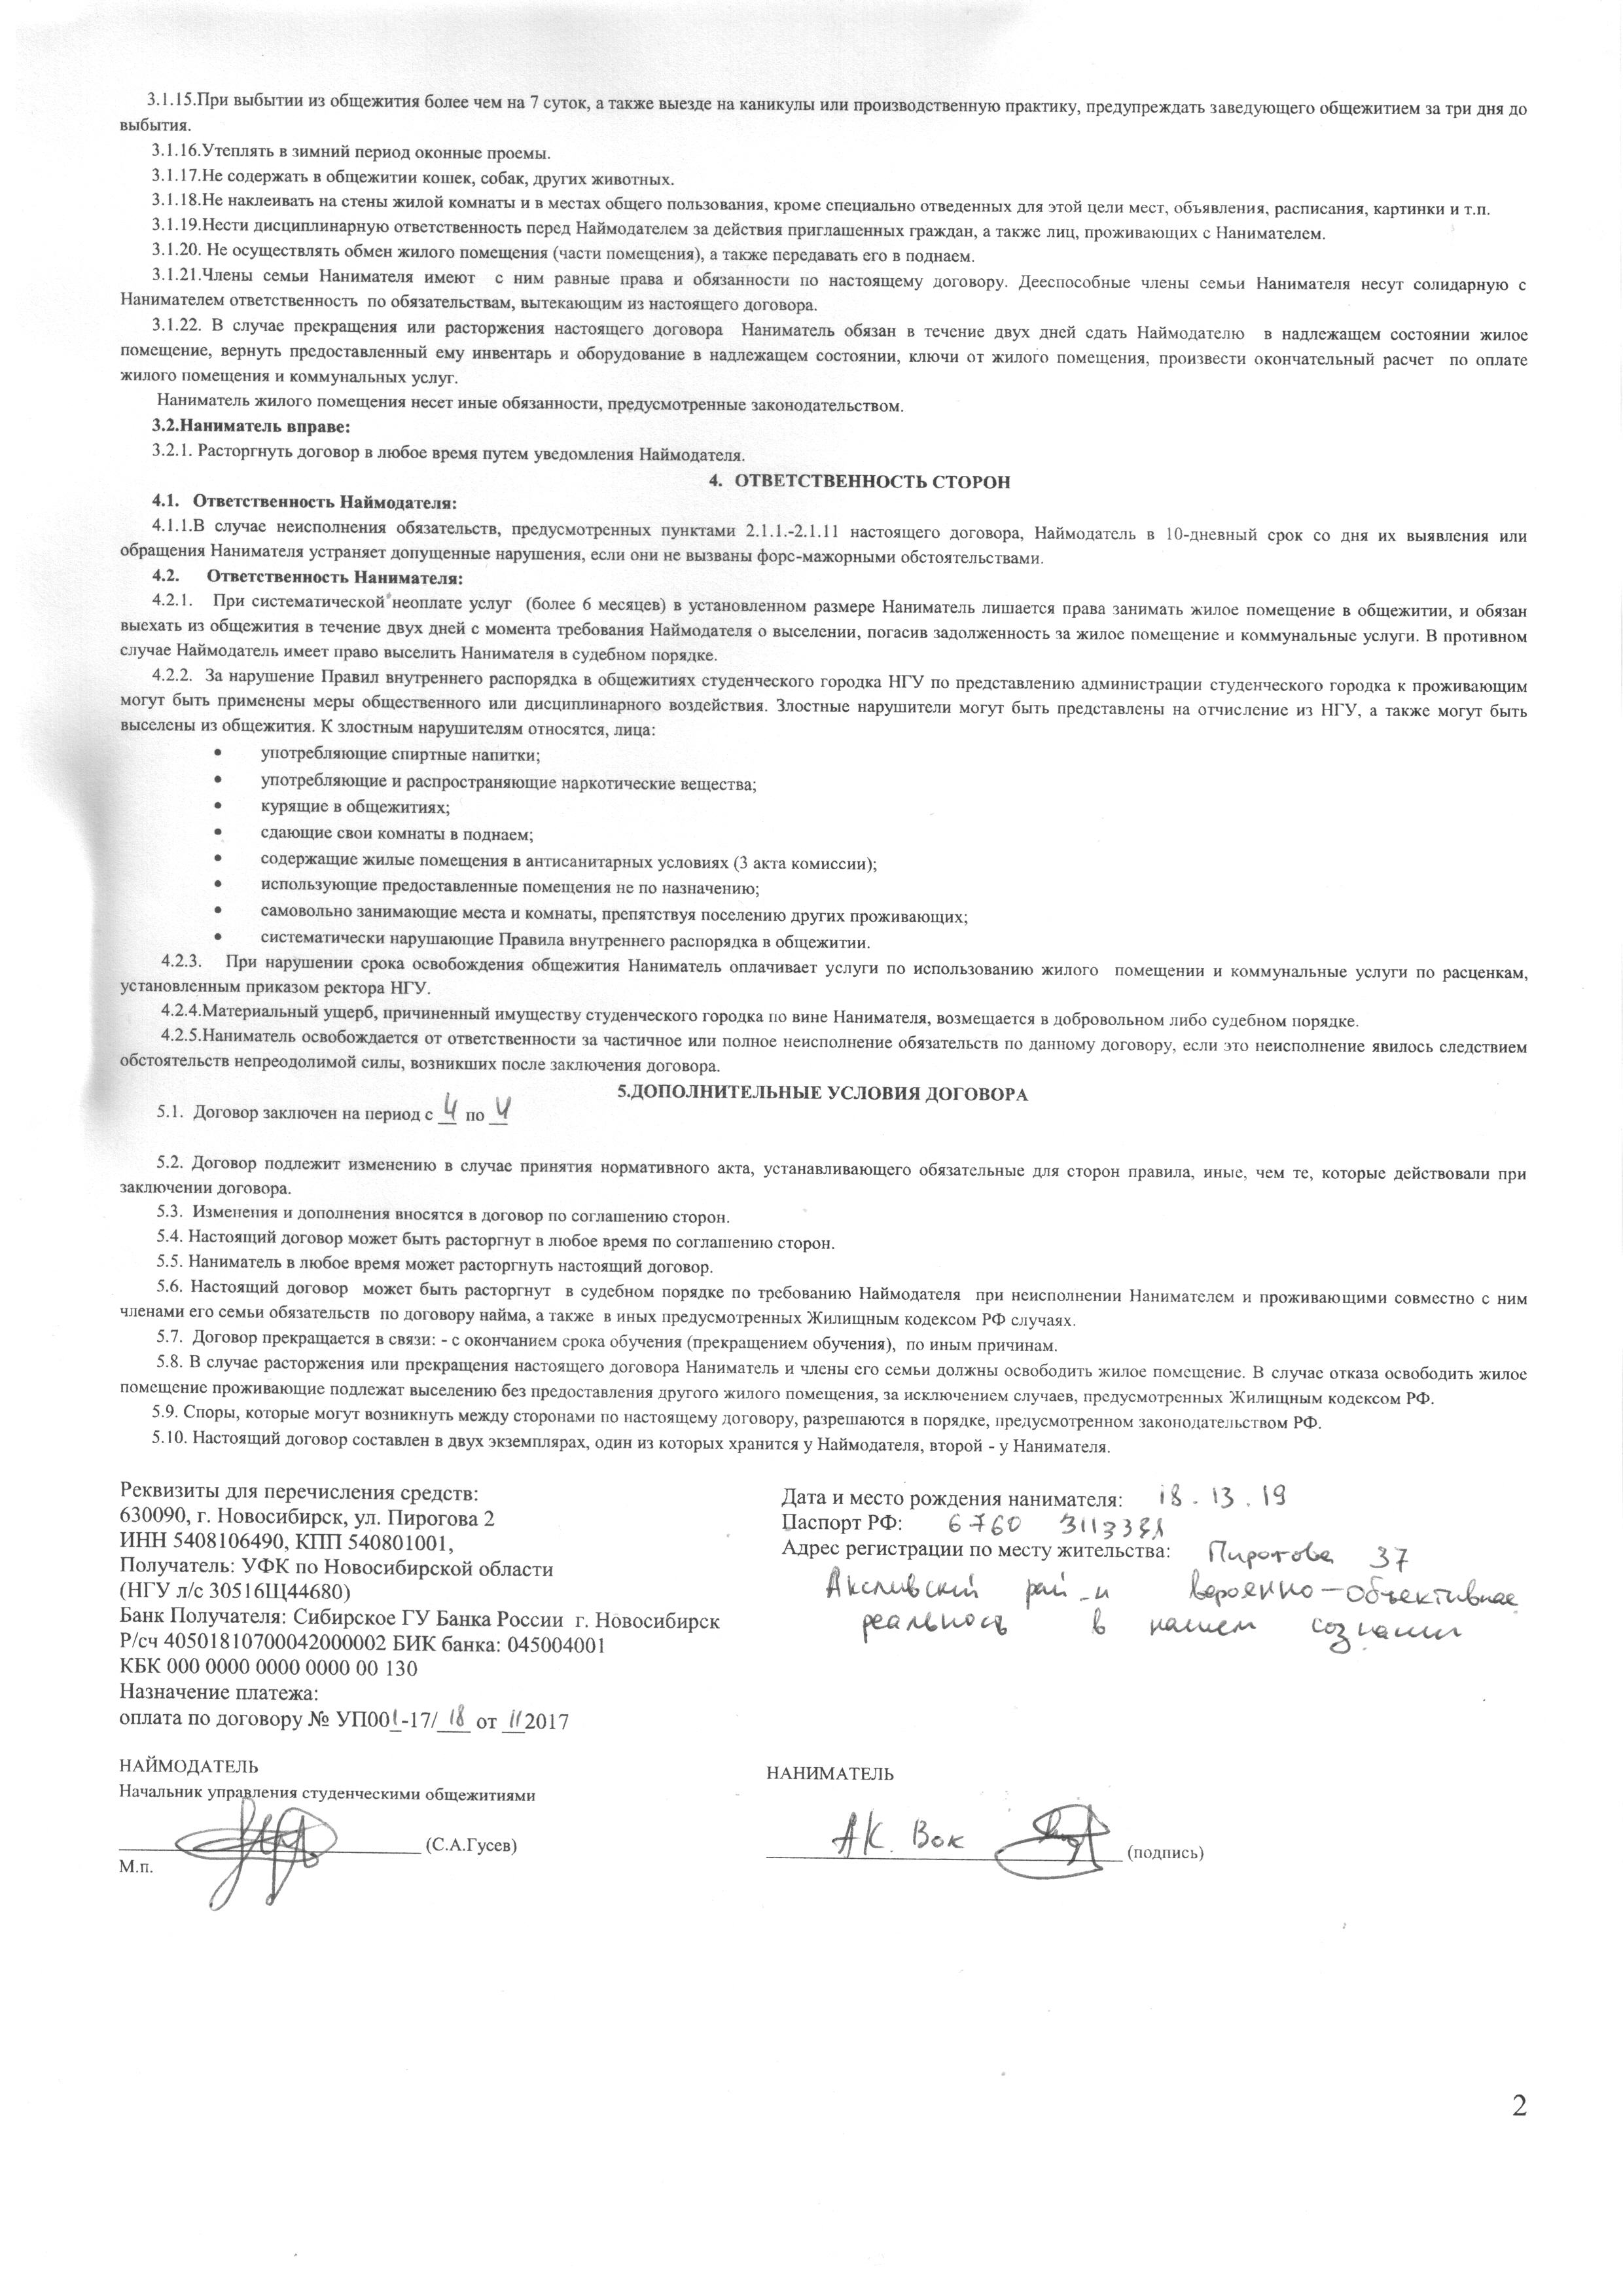 3.1.15.При выбытии из общежития более чем на 7 суток, а также выезде на каникулы или производственную практику, предупреждать заведующего общежитием за три дня до
выбытия.
3.1.16.Утеплять в зимний период оконные проемы.
3.1.17.Не содержать в общежитии кошек, собак, других животных.
3.1.18.Не наклеивать на стены жилой комнаты и в местах общего пользования, кроме специально отведенных для этой цели мест, объявления, расписания, картинки и т.п.
3.1.19.Нести дисциплинарную ответственность перед Наймодателем за действия приглашенных граждан, а также лиц, проживающих с Нанимателем.
3.1.20. Не осуществлять обмен жилого помещения (части помещения), а также передавать его в поднаем.
3.1.21.Члены семьи Нанимателя имеют с ним равные права и обязанности по настоящему договору. Дееспособные члены семьи Нанимателя несут солидарную с
Нанимателем ответственность по обязательствам, вытекающим из настоящего договора.
3.1.22. В случае прекращения или расторжения настоящего договора Наниматель обязан в течение двух дней сдать Наймодателю в надлежащем состоянии жилое
помещение, вернуть предоставленный ему инвентарь и оборудование в надлежащем состоянии, ключи от жилого помещения, произвести окончательный расчет по оплате
жилого помещения и коммунальных услуг.
Наниматель жилого помещения несет иные обязанности, предусмотренные законодательством.
3.2.Наниматель вправе:
3.2.1. Расторгнуть договор в любое время путем уведомления Наймодателя.
4. ОТВЕТСТВЕННОСТЬ СТОРОН
4.1. Ответственность Наймодателя:
4.1.1.В случае неисполнения обязательств, предусмотренных пунктами 2.1.1.-2.1.11 настоящего договора, Наймодатель в 10-дневный срок со дня их выявления или
обращения Нанимателя устраняет допущенные нарушения, если они не вызваны форс-мажорными обстоятельствами.
4.2. Ответственность Нанимателя:
4.2.1. При систематической неоплате услуг (более 6 месяцев) в установленном размере Наниматель лишается права занимать жилое помещение в общежитии, и обязан
выехать из общежития в течение двух дней с момента требования Наймодателя о выселении, погасив задолженность за жилое помещение и коммунальные услуги. В противном
случае Наймодатель имеет право выселить Нанимателя в судебном порядке.
4.2.2. За нарушение Правил внутреннего распорядка в общежитиях студенческого городка НГУ по представлению администрации студенческого городка к проживающим
могут быть применены меры общественного или дисциплинарного воздействия. Злостные нарушители могут быть представлены на отчисление из НГУ, а также могут быть
выселены из общежития. К злостным нарушителям относятся, лица:
• употребляющие спиртные напитки;
• употребляющие и распространяющие наркотические вещества;
• курящие в общежитиях;
• сдающие свои комнаты в поднаем;
• содержащие жилые помещения в антисанитарных условиях (3 акта комиссии);
• использующие предоставленные помещения не по назначению;
• самовольно занимающие места и комнаты, препятствуя поселению других проживающих;
• систематически нарушающие Правила внутреннего распорядка в общежитии.
4.2.3. При нарушении срока освобождения общежития Наниматель оплачивает услуги по использованию жилого помещении и коммунальные услуги по расценкам,
установленным приказом ректора НГУ.
4.2.4.Материальный ущерб, причиненный имуществу студенческого городка по вине Нанимателя, возмещается в добровольном либо судебном порядке.
4.2.5.Наниматель освобождается от ответственности за частичное или полное неисполнение обязательств по данному договору, если это неисполнение явилось следствием
обстоятельств непреодолимой силы, возникших после заключения договора.
5.ДОПОЛНИТЕЛЬНЫЕ УСЛОВИЯ ДОГОВОРА
5.1. Договор заключен на период с 4 по 4
5.2. Договор подлежит изменению в случае принятия нормативного акта, устанавливающего обязательные для сторон правила, иные, чем те, которые действовали при
заключении договора.
5.3. Изменения и дополнения вносятся в договор по соглашению сторон.
5.4. Настоящий договор может быть расторгнут в любое время по соглашению сторон.
5.5. Наниматель в любое время может расторгнуть настоящий договор.
5.6. Настоящий договор может быть расторгнут в судебном порядке по требованию Наймодателя при неисполнении Нанимателем и проживающими совместно с ним
членами его семьи обязательств по договору найма, а также в иных предусмотренных Жилищным кодексом РФ случаях.
5.7. Договор прекращается в связи: - с окончанием срока обучения (прекращением обучения), по иным причинам.
5.8. В случае расторжения или прекращения настоящего договора Наниматель и члены его семьи должны освободить жилое помещение. В случае отказа освободить жилое
помещение проживающие подлежат выселению без предоставления другого жилого помещения, за исключением случаев, предусмотренных Жилищным кодексом РФ.
5.9. Споры, которые могут возникнуть между сторонами по настоящему договору, разрешаются в порядке, предусмотренном законодательством РФ.
5.10. Настоящий договор составлен в двух экземплярах, один из которых хранится у Наймодателя, второй - у Нанимателя.
Реквизиты для перечисления средств:
630090, г. Новосибирск, ул. Пирогова 2
ИНН 5408106490, КПП 540801001,
Получатель: УФК по Новосибирской области
(НГУ л/с 30516Щ44680)
Банк Получателя: Сибирское ГУ Банка России г. Новосибирск
Р/сч 40501810700042000002 БИК банка: 045004001
КБК 000 0000 0000 0000 00 130
Назначение платежа:
оплата по договору № УП001-17/ 18 от 11 2017
Дата и место рождения нанимателя: 18.13.19
Паспорт РФ: 6760
Адрес регистрации по месту жительства: Пирогова 37
рай-н вероятно-объективная
реальность в нашем сознании
НАЙМОДАТЕЛЬ
Начальник управления студенческими общежитиями
(С.А.Гусев)
М.п.
НАНИМАТЕЛЬ
АК. Вок (подпись)
2